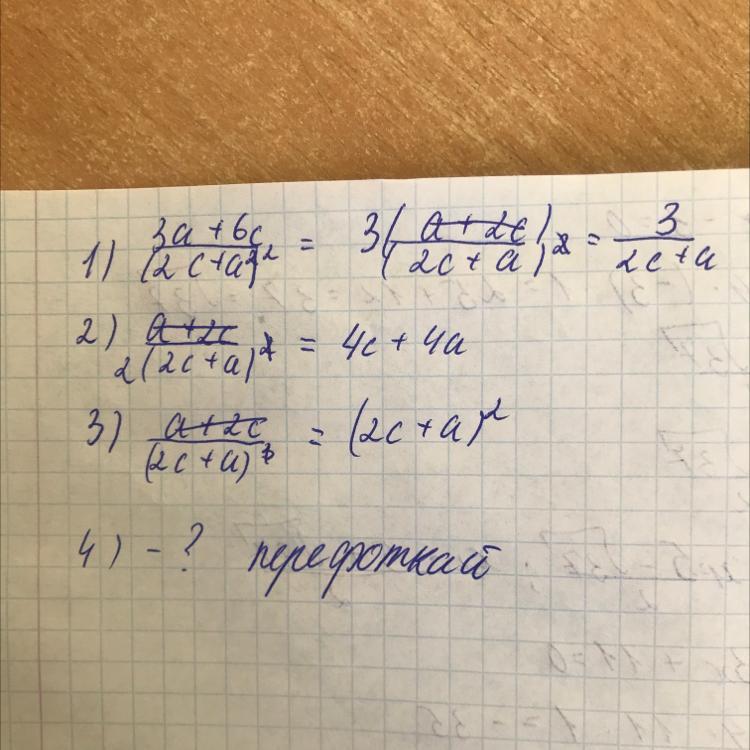 1) (3a + 6c)/(2c + a)² = 3(a + 2c)/(2c + a)² = 3/(2c + a)
2) (a + 2c)/2(2c + a)² = 4c + 4a
3) (a + 2c)/(2c + a)³ = (2c + a)²
4) - ? перефоткай